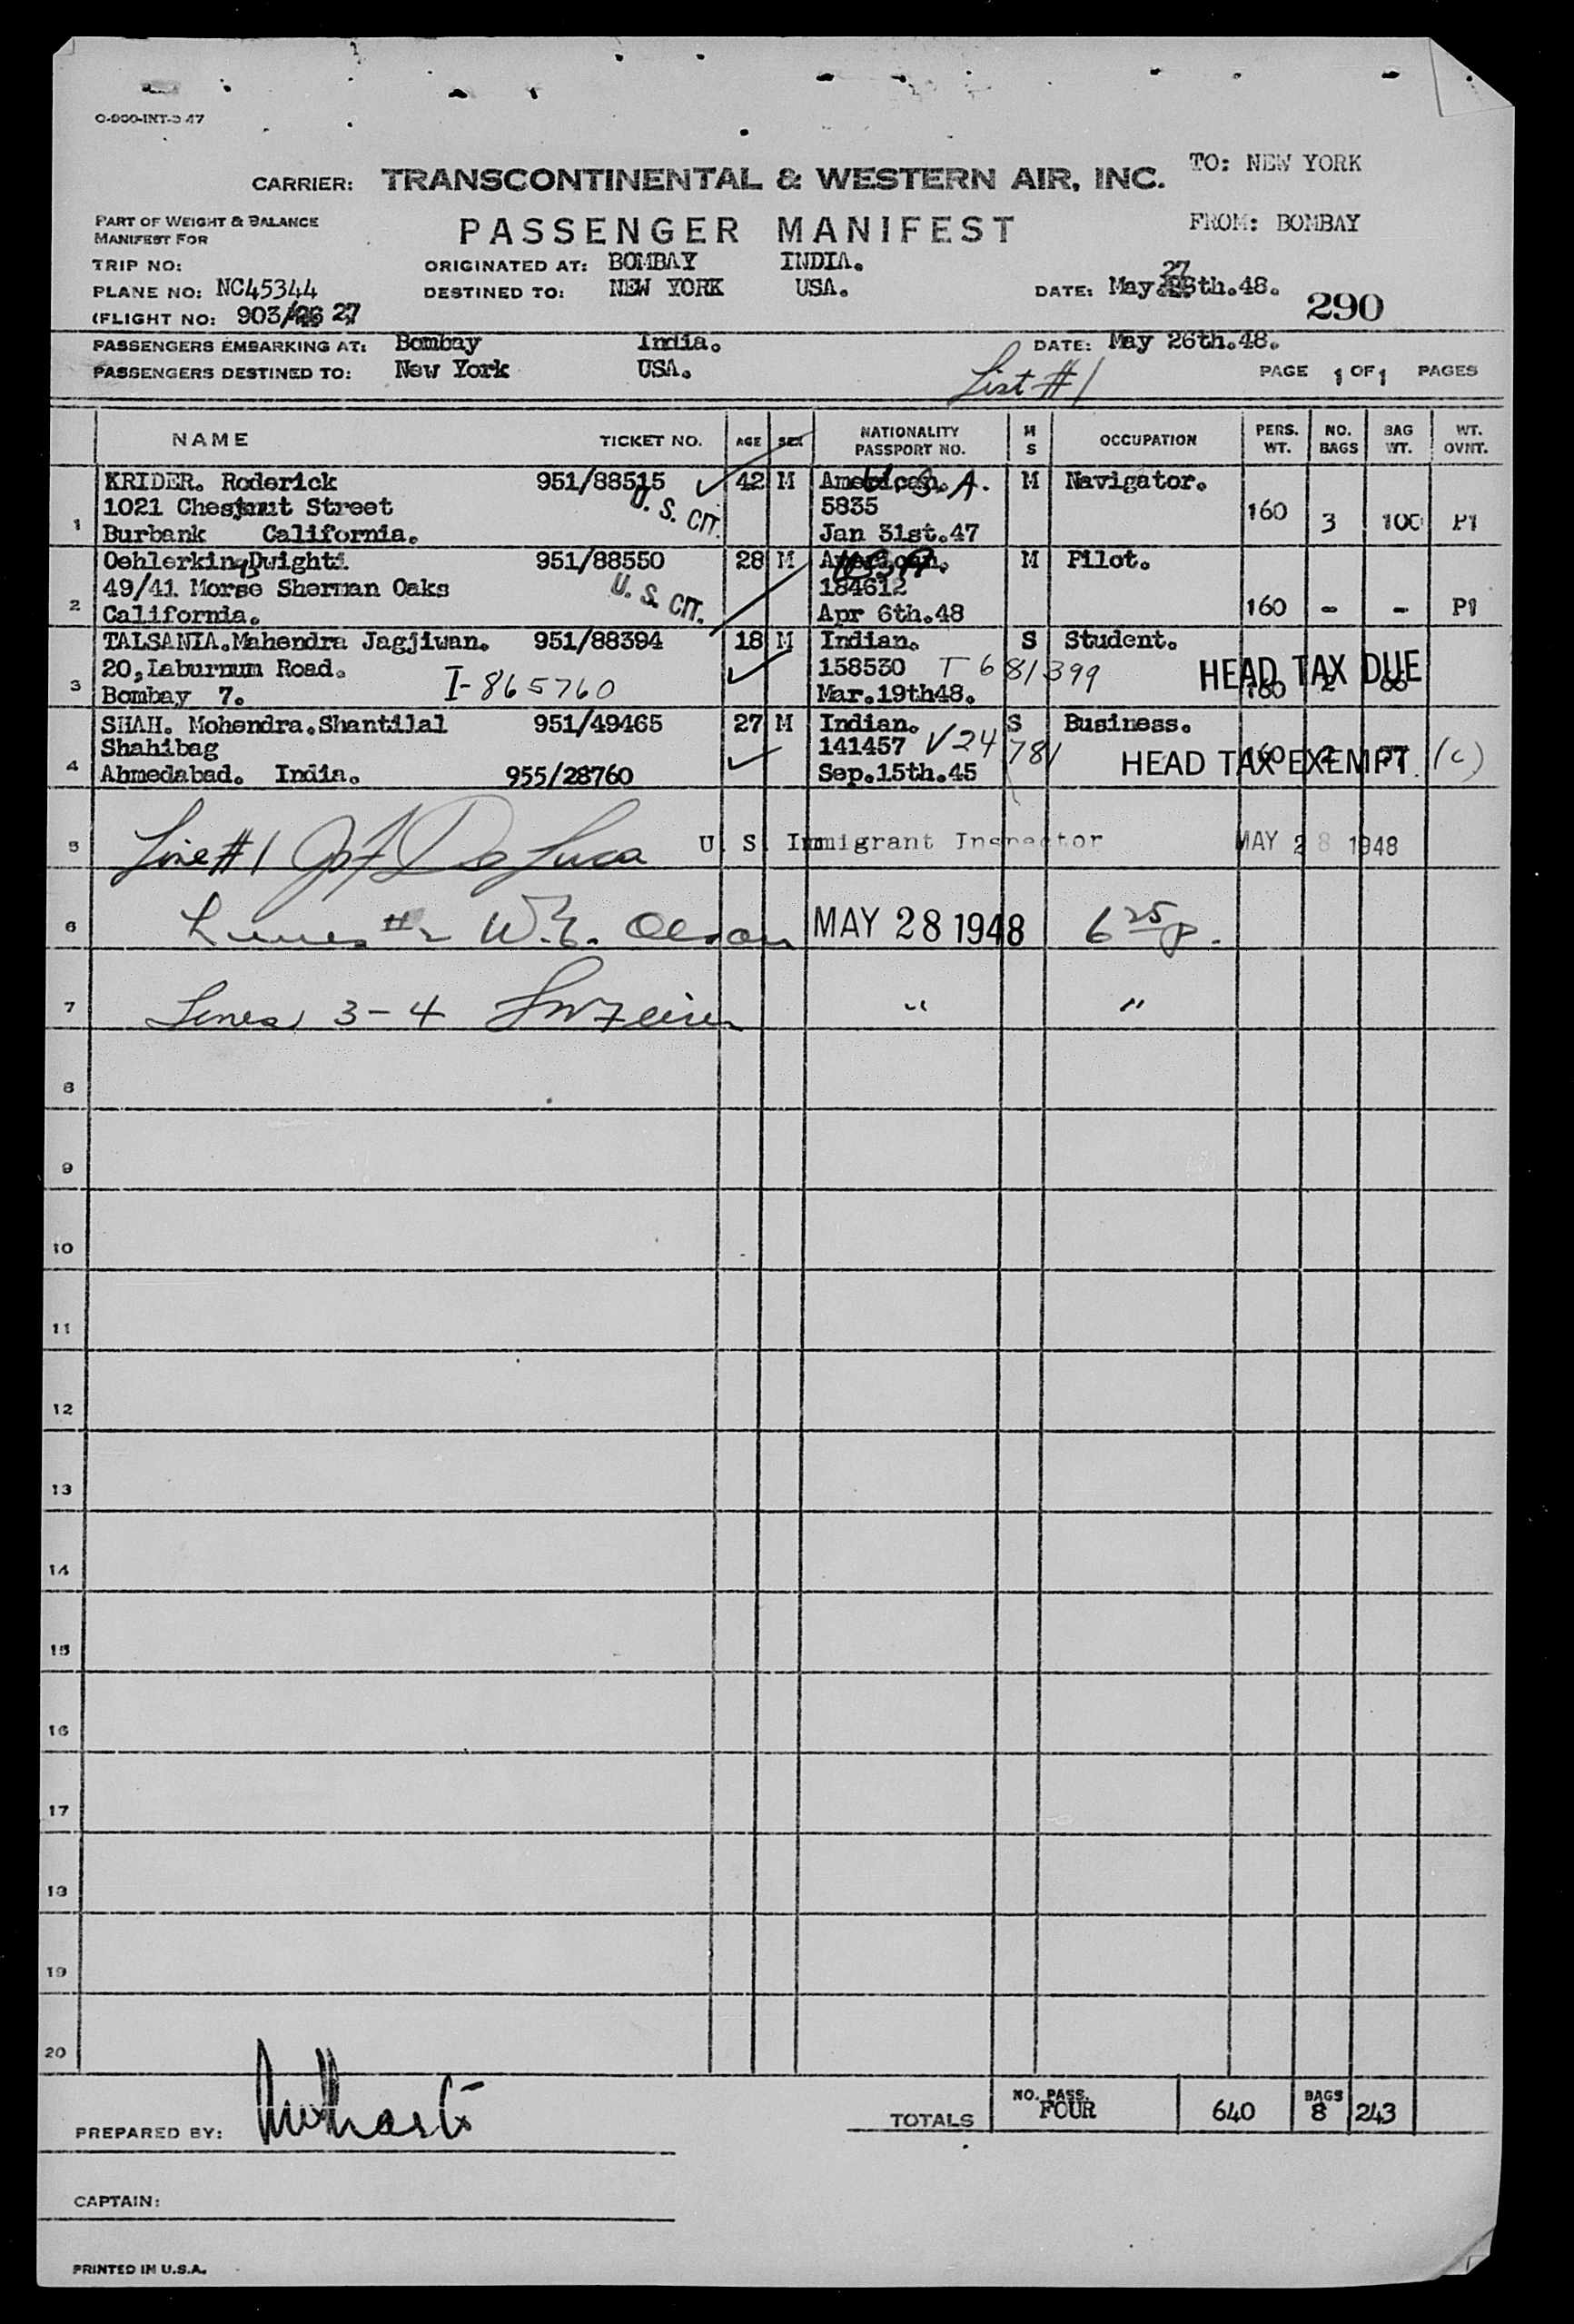 TO: NEW YORK
CARRIER: TRANSCONTINENTAL & WESTERN AIR, INC.
PART OF WEIGHT & BALANCE
MANIFEST FOR
PASSENGER MANIFEST
FROM: BOMBAY
TRIP NO:
ORIGINATED AT: BOMBAY INDIA.
PLANE NO: NC45344
DESTINED TO: NEW YORK USA.
DATE: May 27 th.48.
290
(FLIGHT NO: 903/ 27
PASSENGERS EMBARKING AT: Bombay India.
DATE: May 26th.48.
PASSENGERS DESTINED TO: New York USA.
List #1
PAGE 1 OF 1 PAGES
NAME TICKET NO. AGE SEX NATIONALITY PASSPORT NO. M S OCCUPATION PERS. WT. NO. BAGS BAG WT. WT. OVNT.
1 KRIDER. Roderick 951/88515 42 M American. U.S.A. M Navigator.
1021 Chestnut Street U. S. CIT. 5835 160 3 100 P1
Burbank California. Jan 31st.47
2 Oehlerking Dwight 951/88550 28 M American. USA. M Pilot.
49/41 Morse Sherman Oaks U. S. CIT. 184612
California. Apr 6th.48 160 - - P1
3 TALSANIA.Mahendra Jagjiwan. 951/88394 18 M Indian. S Student.
20,Laburnum Road. 158530 T 681399 HEAD TAX DUE
Bombay 7. I-865760 Mar.19th48. 160 2
4 SHAH. Mohendra.Shantilal 951/49465 27 M Indian. S Business.
Shahibag 141457 V24781 HEAD TAX EXEMPT. (c)
Ahmedabad. India. 955/28760 Sep.15th.45 160 2
5 Line #1 De Luca U. S. Immigrant Inspector MAY 28 1948
6 Lines #2 W.E. Olson MAY 28 1948 6 25 p.
7 Lines 3-4 " "
8
9
10
11
12
13
14
15
16
17
18
19
20
PREPARED BY:
TOTALS NO. PASS. FOUR 640 BAGS 8 243
CAPTAIN:
PRINTED IN U.S.A.